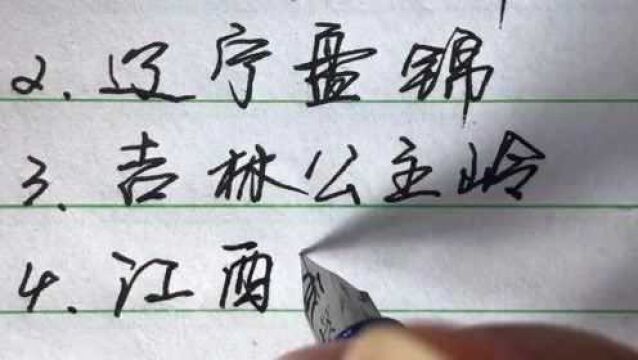 2. 辽宁盘锦
3. 吉林公主岭
4. 江西